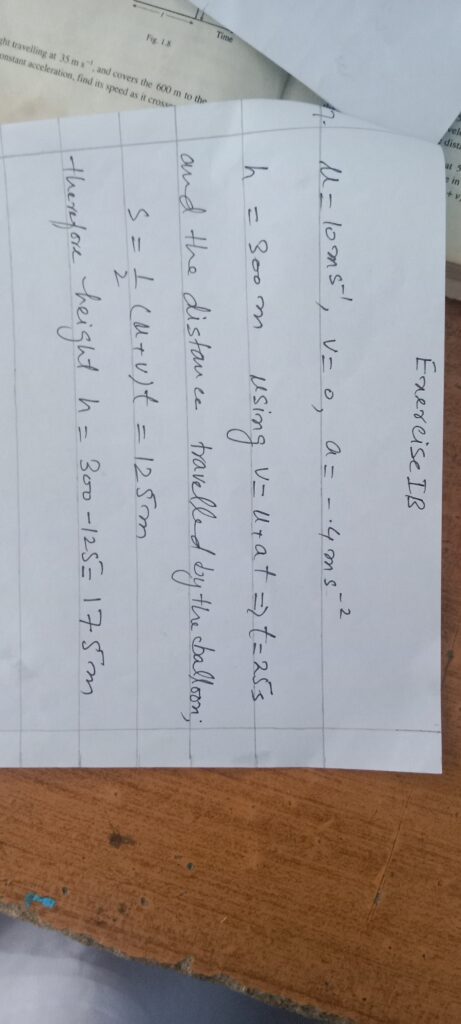 Fig. 1.8
Time
ght travelling at 35 m s⁻¹, and covers the 600 m to the
onstant acceleration, find its speed as it
Exercise 1B
u = 10 ms⁻¹, v = 0, a = - .4 ms⁻²
h = 300 m using v = u + at ⇒ t = 25s
and the distance travelled by the balloon;
s = ½ (u+v)t = 125 m
therefore height h = 300 - 125 = 175 m